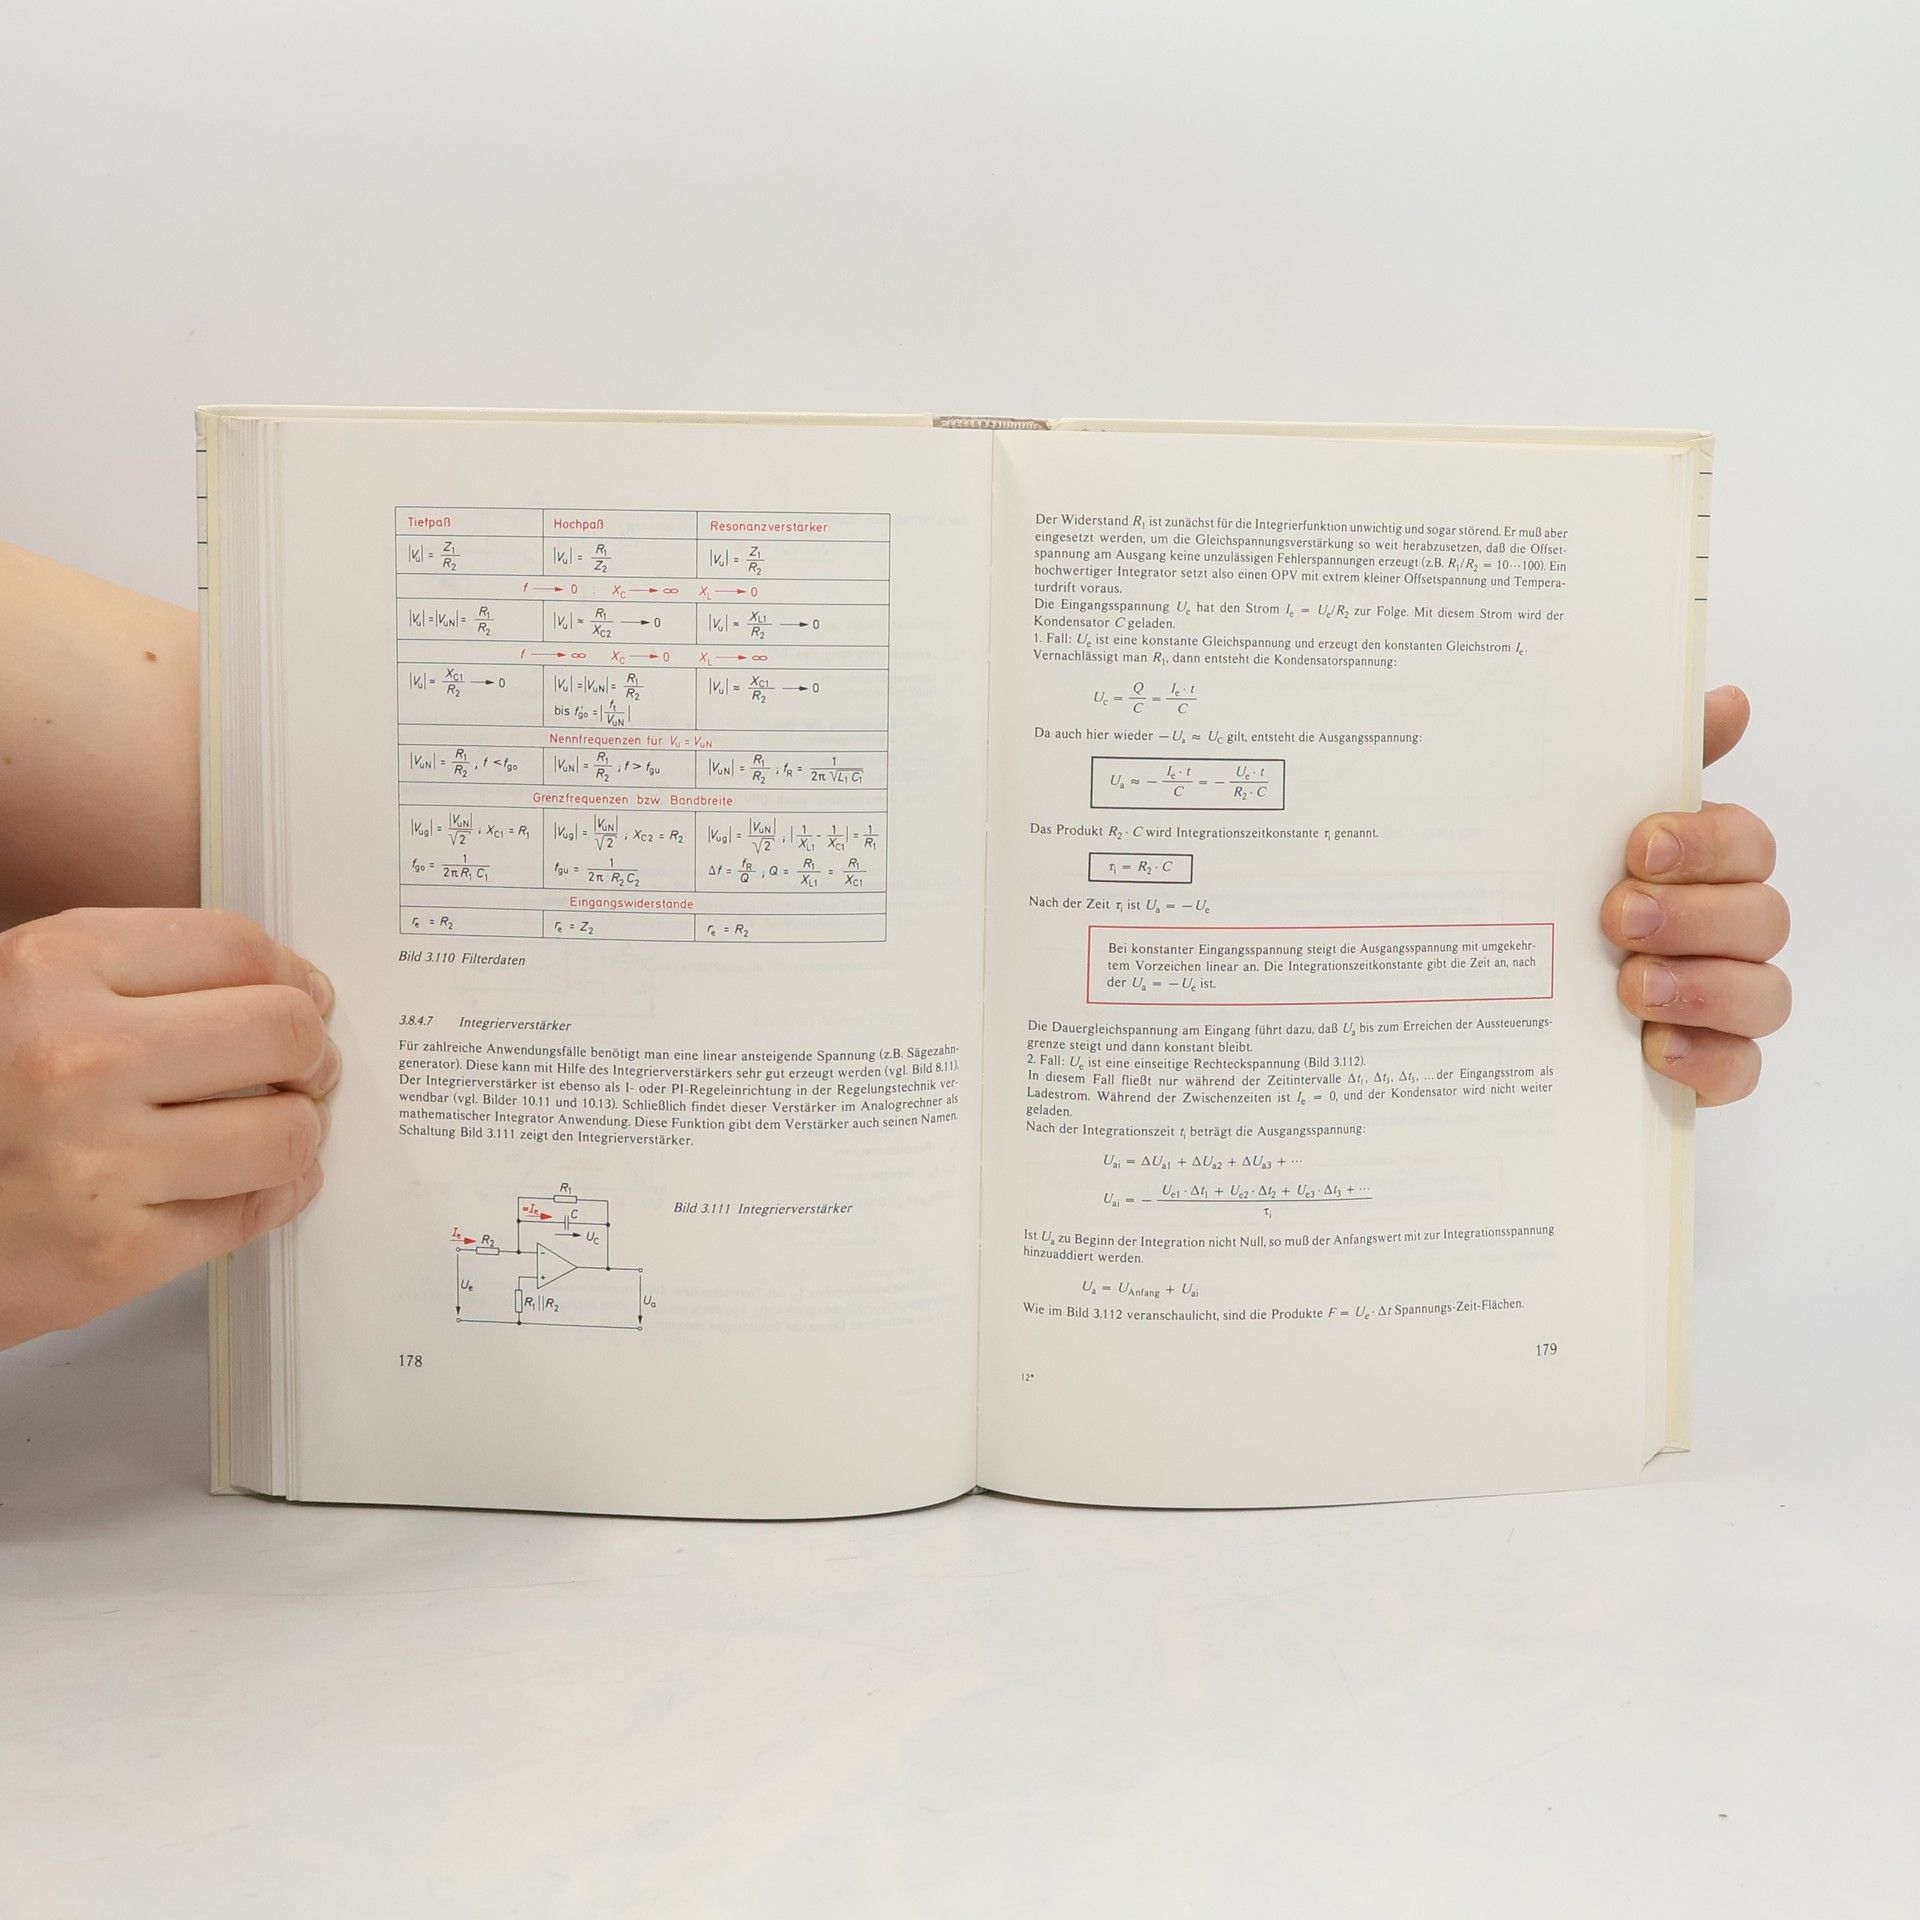 Tiefpaß Hochpaß Resonanzverstärker
|Vu| = Z1/R2 |Vu| = R1/Z2 |Vu| = Z1/R2
f → 0 : XC → ∞ XL → 0
|Vu| = |VuN| = R1/R2 |Vu| ≈ R1/XC2 → 0 |Vu| ≈ XL1/R2 → 0
f → ∞ XC → 0 XL → ∞
|Vu| ≈ XC1/R2 → 0 |Vu| = |VuN| = R1/R2 |Vu| ≈ XC1/R2 → 0
bis f'go = |f1/VuN|
Nennfrequenzen für Vu = VuN
|VuN| = R1/R2 ; f < fgo |VuN| = R1/R2 ; f > fgu |VuN| = R1/R2 ; fR = 1/(2π √(L1 C1))
Grenzfrequenzen bzw. Bandbreite
|Vug| = |VuN|/√2 ; XC1 = R1 |Vug| = |VuN|/√2 ; XC2 = R2 |Vug| = |VuN|/√2 ; |1/XL1 - 1/XC1| = 1/R1
fgo = 1/(2π R1 C1) fgu = 1/(2π · R2 C2) Δf = fR/Q ; Q = R1/XL1 = R1/XC1
Eingangswiderstände
re = R2 re = Z2 re = R2
Bild 3.110 Filterdaten
3.8.4.7 Integrierverstärker
Für zahlreiche Anwendungsfälle benötigt man eine linear ansteigende Spannung (z.B. Sägezahn-
generator). Diese kann mit Hilfe des Integrierverstärkers sehr gut erzeugt werden (vgl. Bild 8.11).
Der Integrierverstärker ist ebenso als I- oder PI-Regeleinrichtung in der Regelungstechnik ver-
wendbar (vgl. Bilder 10.11 und 10.13). Schließlich findet dieser Verstärker im Analogrechner als
mathematischer Integrator Anwendung. Diese Funktion gibt dem Verstärker auch seinen Namen.
Schaltung Bild 3.111 zeigt den Integrierverstärker.
R1
≈Ie C
UC
Ie R2
-
+
Ue
R1||R2
Ua
Bild 3.111 Integrierverstärker
178
Der Widerstand R1 ist zunächst für die Integrierfunktion unwichtig und sogar störend. Er muß aber
eingesetzt werden, um die Gleichspannungsverstärkung so weit herabzusetzen, daß die Offset-
spannung am Ausgang keine unzulässigen Fehlerspannungen erzeugt (z.B. R1/R2 = 10···100). Ein
hochwertiger Integrator setzt also einen OPV mit extrem kleiner Offsetspannung und Tempera-
turdrift voraus.
Die Eingangsspannung Ue hat den Strom Ie = Ue/R2 zur Folge. Mit diesem Strom wird der
Kondensator C geladen.
1. Fall: Ue ist eine konstante Gleichspannung und erzeugt den konstanten Gleichstrom Ie.
Vernachlässigt man R1, dann entsteht die Kondensatorspannung:
Uc = Q/C = Ie · t/C
Da auch hier wieder − Ua ≈ UC gilt, entsteht die Ausgangsspannung:
Ua ≈ − Ie · t/C = − Ue · t/(R2 · C)
Das Produkt R2 · C wird Integrationszeitkonstante τi genannt.
τi = R2 · C
Nach der Zeit τi ist Ua = − Ue
Bei konstanter Eingangsspannung steigt die Ausgangsspannung mit umgekehr-
tem Vorzeichen linear an. Die Integrationszeitkonstante gibt die Zeit an, nach
der Ua = − Ue ist.
Die Dauergleichspannung am Eingang führt dazu, daß Ua bis zum Erreichen der Aussteuerungs-
grenze steigt und dann konstant bleibt.
2. Fall: Ue ist eine einseitige Rechteckspannung (Bild 3.112).
In diesem Fall fließt nur während der Zeitintervalle Δt1, Δt3, Δt5, ... der Eingangsstrom als
Ladestrom. Während der Zwischenzeiten ist Ie = 0, und der Kondensator wird nicht weiter
geladen.
Nach der Integrationszeit ti beträgt die Ausgangsspannung:
Uai = ΔUa1 + ΔUa2 + ΔUa3 + ···
Uai = − (Ue1 · Δt1 + Ue2 · Δt2 + Ue3 · Δt3 + ···)/τi
Ist Ua zu Beginn der Integration nicht Null, so muß der Anfangswert mit zur Integrationsspannung
hinzuaddiert werden.
Ua = UAnfang + Uai
Wie im Bild 3.112 veranschaulicht, sind die Produkte F = Ue · Δt Spannungs-Zeit-Flächen.
179
12*